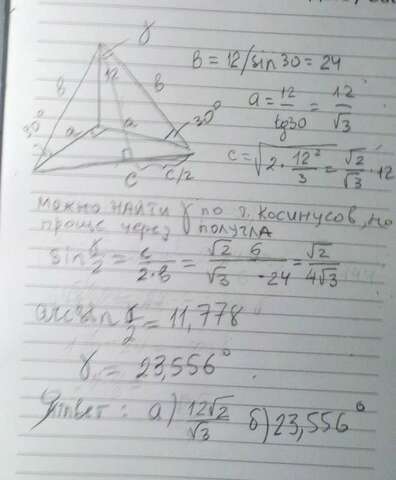 γ
12
в
в
30°
30°
a
a
c
c/2
в = 12/sin 30 = 24
a = 12/tg30 = 12/√3
c = √(2 · 12²/3) = √2/√3 · 12
можно найти γ по т. косинусов, но
проще через полугла
sin γ/2 = c/2·в = √2/√3 6/·24 = √2/4√3
arcsin γ/2 = 11,778
γ = 23,556°
Ответ: а) 12√2/√3 б) 23,556°